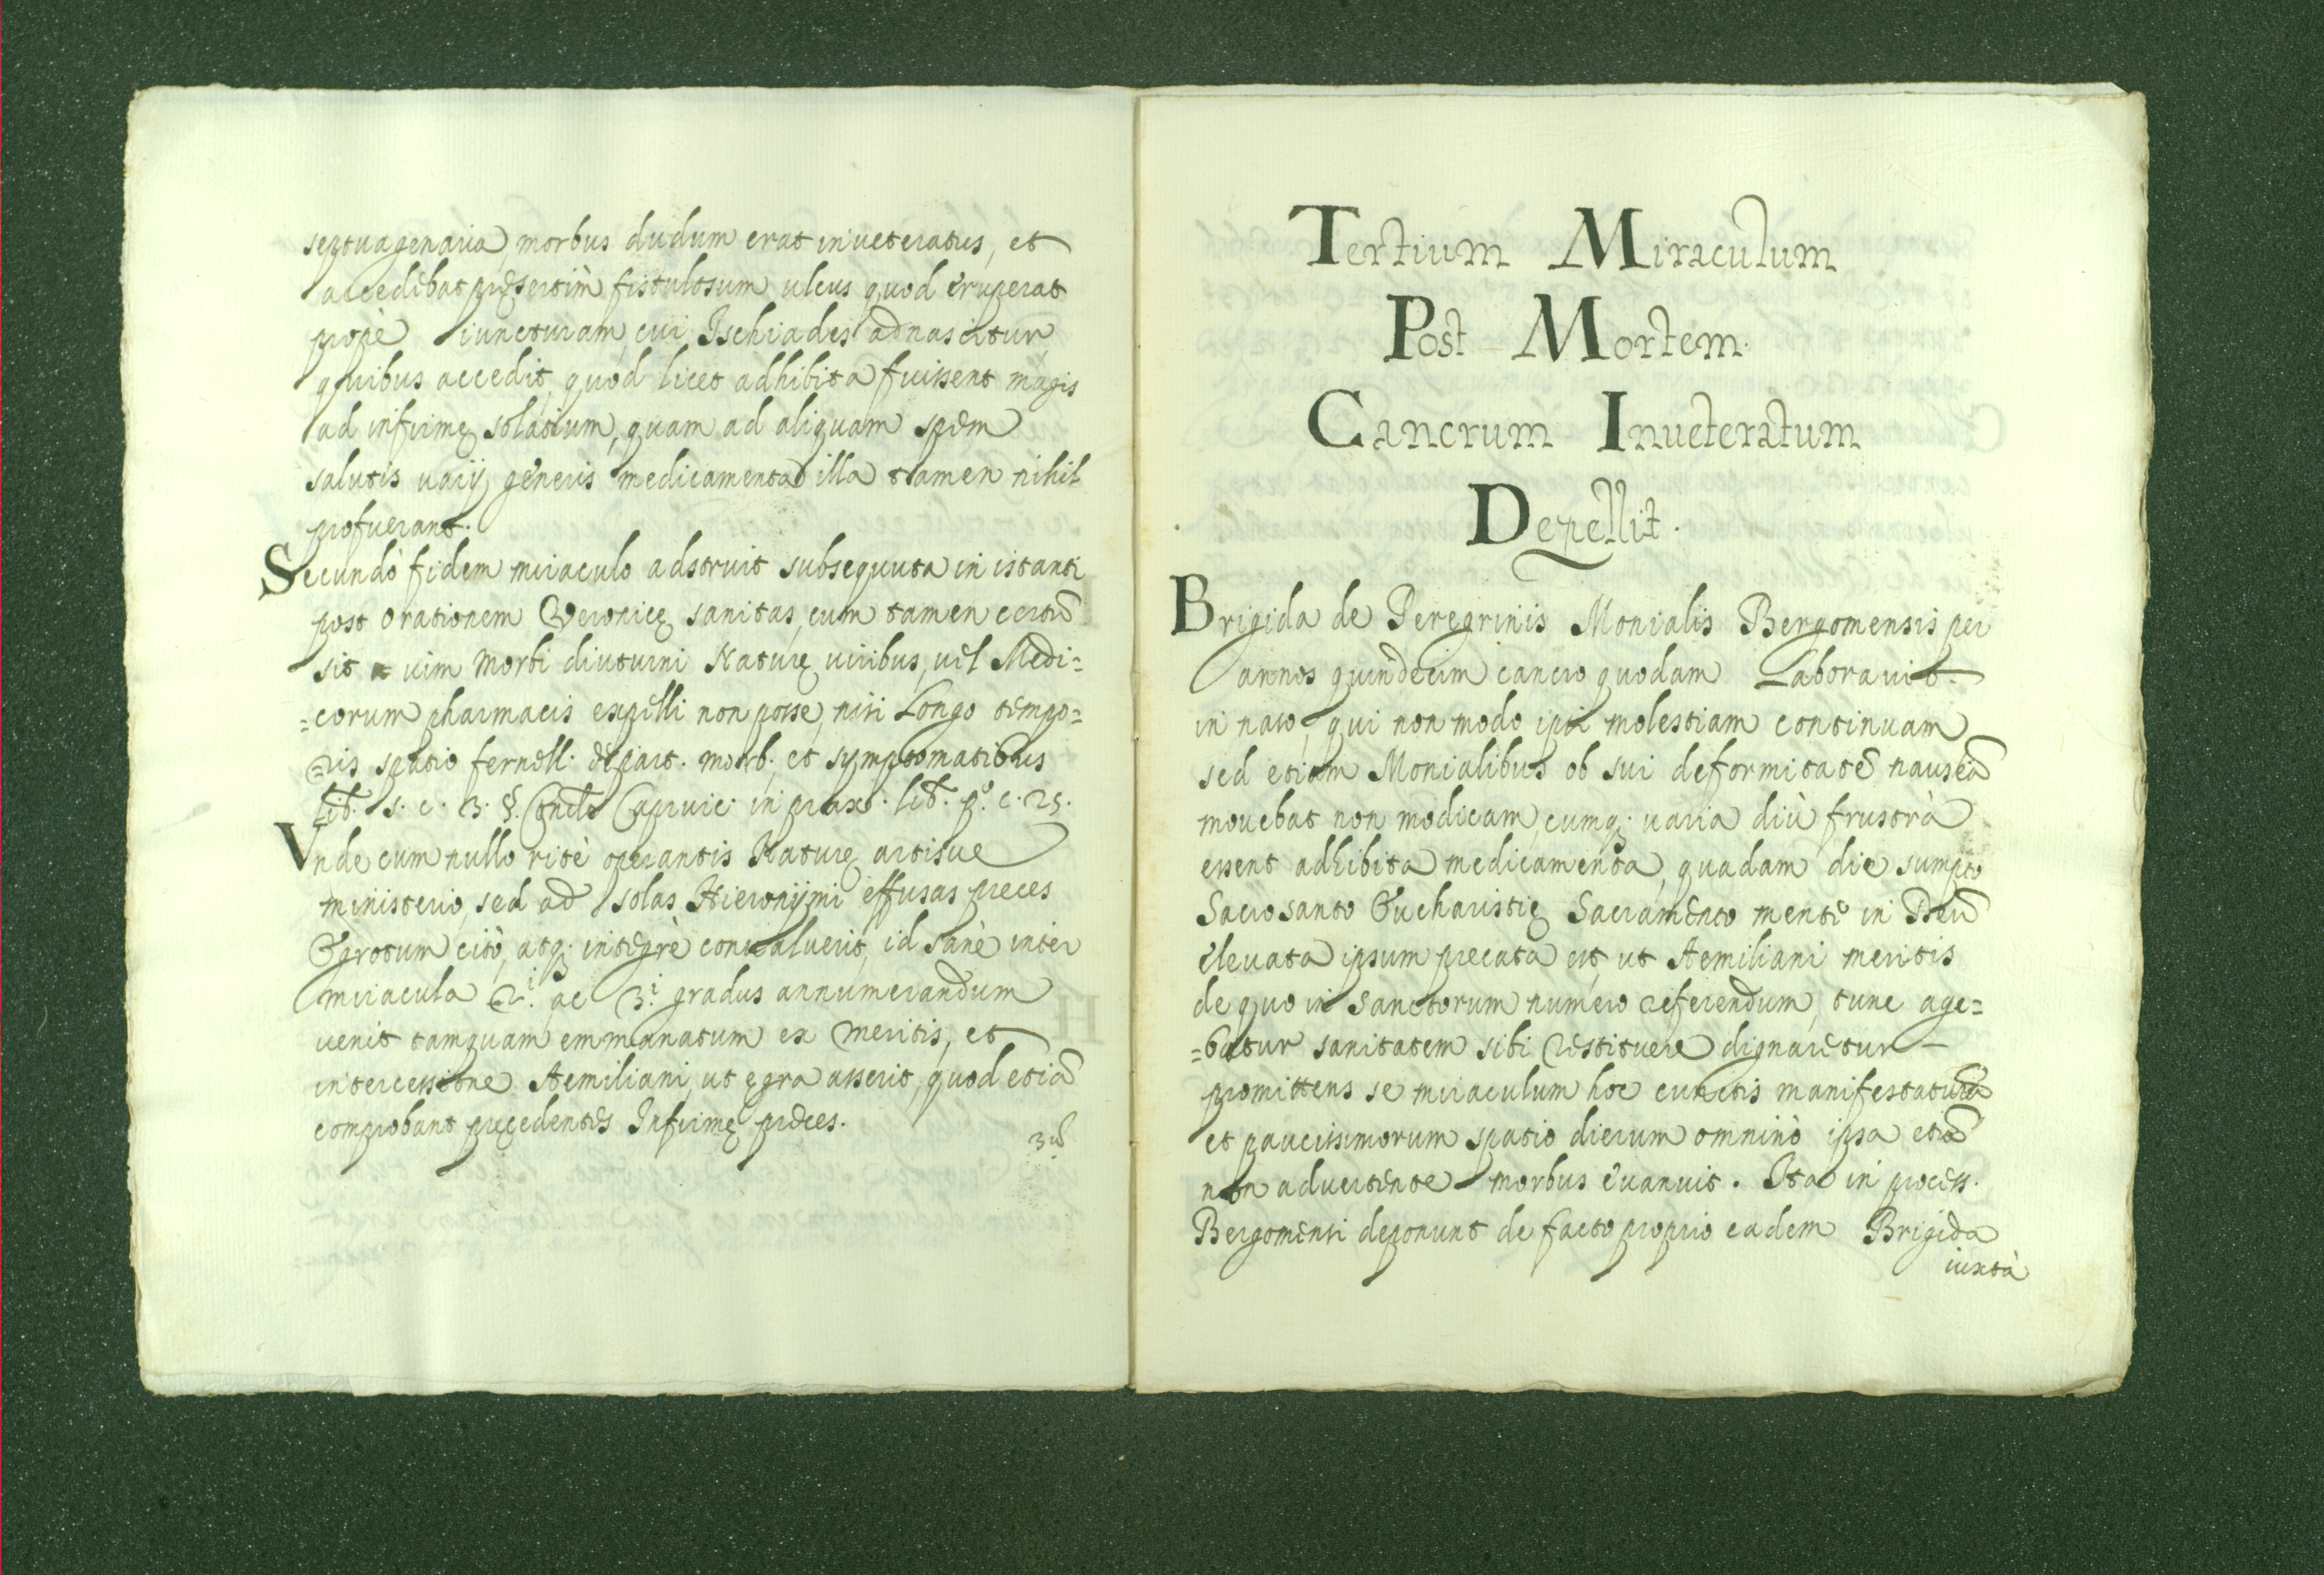 septuagenaria, morbus dudum erat inueteratus, et
accedebat pręsertim fistulosum ulcus quod eruperat
propè iuncturam, cui Ischiades adnascitur,
quibus accedit, quod licet adhibita fuissent magis
ad infirmę solatium, quam ad aliquam spem
salutis varij generis medicamenta illa tamen nihil
profuerant.
Secundò fidem miraculo adstruit subsequuta in istanti
post orationem Veronicę sanitas, cum tamen certũ
sit uim morbi diuturni Naturę uiribus, uel Medi=
=corum pharmacis expelli non posse, nisi Longo tempo=
=ris spatio fernell. de part. morb. et symptomatibus
lib. s. c. 3. §. Capiuic. in prax. lib. p.º c. 25.
Vnde cum nullo ritè operantis Naturę artisue
ministerio, sed ad solas Hieronymi effusas preces
Ægrotum citò, atq; integrè conualuerit, id sanè inter
miracula 2.i ac 3.i gradus annumerandum
uenit tamquam emmanatum ex meritis, et
intercessione Aemiliani, ut ęgra asserit, quod etiã
comprobant pręcedentes Infirmę preces.
3.ũ
Tertium Miraculum
Post Mortem.
Cancrum Inueteratum
Depellit.
Brigida de Peregrinis Monialis Bergomensis per
annos quindecim cancro quodam Laborauit
in naso, qui non modo ipsi molestiam continuam
sed etiam Monialibus ob sui deformitatẽ nauseã
mouebat non modicam, cumq; uaria diù frustrà
essent adhibita medicamenta, quadam die sumpto
Sacrosanto Eucharistię Sacramento mente in Deũ
eleuata ipsum precata est, ut Aemiliani meritis
de quo in sanctorum numero referendum, tunc age=
=batur sanitatem sibi restituere dignaretur
promittens se miraculum hoc cunctis manifestaturã
et paucissimorum spatio dierum omninò ipsa etiã
non aduertente morbus euanuit. Ita in process.
Bergomensi deponunt de facto proprio eadem Brigida
iuxtà